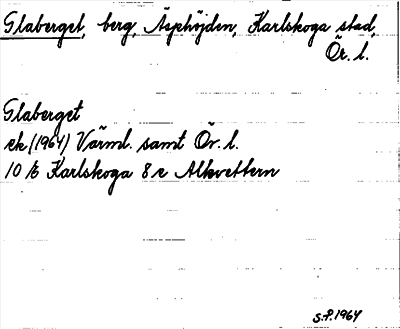 Glaberget, berg, Äsphöjden, Karlskoga stad,
Ör. l.
Glaberget
ek (1964) Värml. samt Ör. l.
10 E Karlskoga 8 e Alkvettern
S.P. 1964